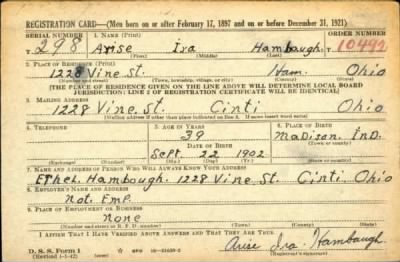 REGISTRATION CARD—(Men born on or after February 17, 1897 and on or before December 31, 1921)
SERIAL NUMBER 1. NAME (Print) ORDER NUMBER
T 298 Arise Ira Hambaugh 10492
(First) (Middle) (Last)
2. PLACE OF RESIDENCE (Print)
1228 Vine St. Ham. Ohio
(Number and street) (Town, township, village, or city) (County) (State)
[THE PLACE OF RESIDENCE GIVEN ON THE LINE ABOVE WILL DETERMINE LOCAL BOARD
JURISDICTION; LINE 2 OF REGISTRATION CERTIFICATE WILL BE IDENTICAL]
3. MAILING ADDRESS
1228 Vine St. Cinti Ohio
[Mailing address if other than place indicated on line 2. If same insert word same]
4. TELEPHONE 5. AGE IN YEARS 6. PLACE OF BIRTH
39 Madison
DATE OF BIRTH (Town or county)
Sept 22 1902 IND.
(Exchange) (Number) (Mo.) (Day) (Yr.) (State or country)
7. NAME AND ADDRESS OF PERSON WHO WILL ALWAYS KNOW YOUR ADDRESS
Ethel Hambough. 1228 Vine St. Cinti Ohio
8. EMPLOYER'S NAME AND ADDRESS
Not Emp.
9. PLACE OF EMPLOYMENT OR BUSINESS
none
(Number and street or R. F. D. number) (Town) (County) (State)
I AFFIRM THAT I HAVE VERIFIED ABOVE ANSWERS AND THAT THEY ARE TRUE.
D. S. S. Form 1
(Revised 1-1-42) (over) Arise Ira Hambaugh